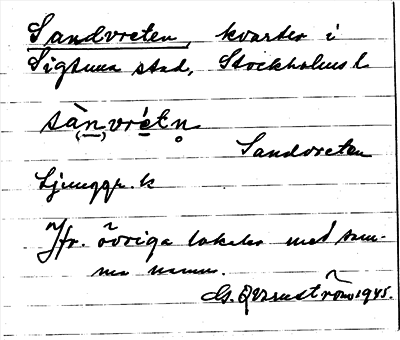 Sandvreten, kvarter i
Sigtuna stad, Stockholms l
sànvrétn
Sandvreten
Ljunggr. k
Jfr. övriga lokaler med sam-
ma namn.
G. Qvarnström 1945.